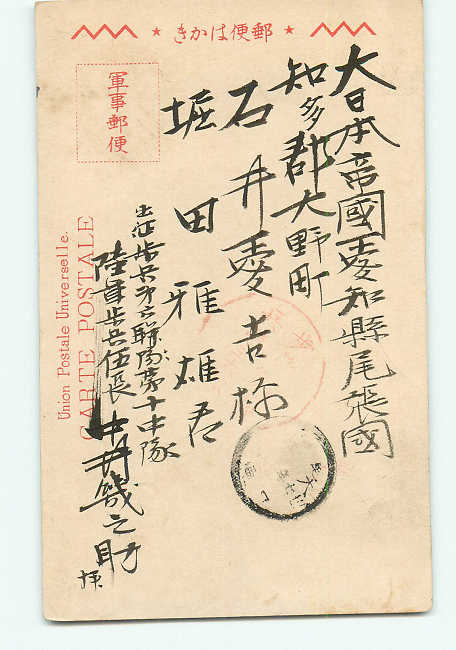 郵便はかき
軍事郵便
大日本帝國愛知縣尾張國
知多郡大野町
石井愛吉称
堀田雅雄君
出征歩兵第六聯隊第十中隊
陸軍歩兵伍長 中井幾之助
Union Postale Universelle.
CARTE POSTALE